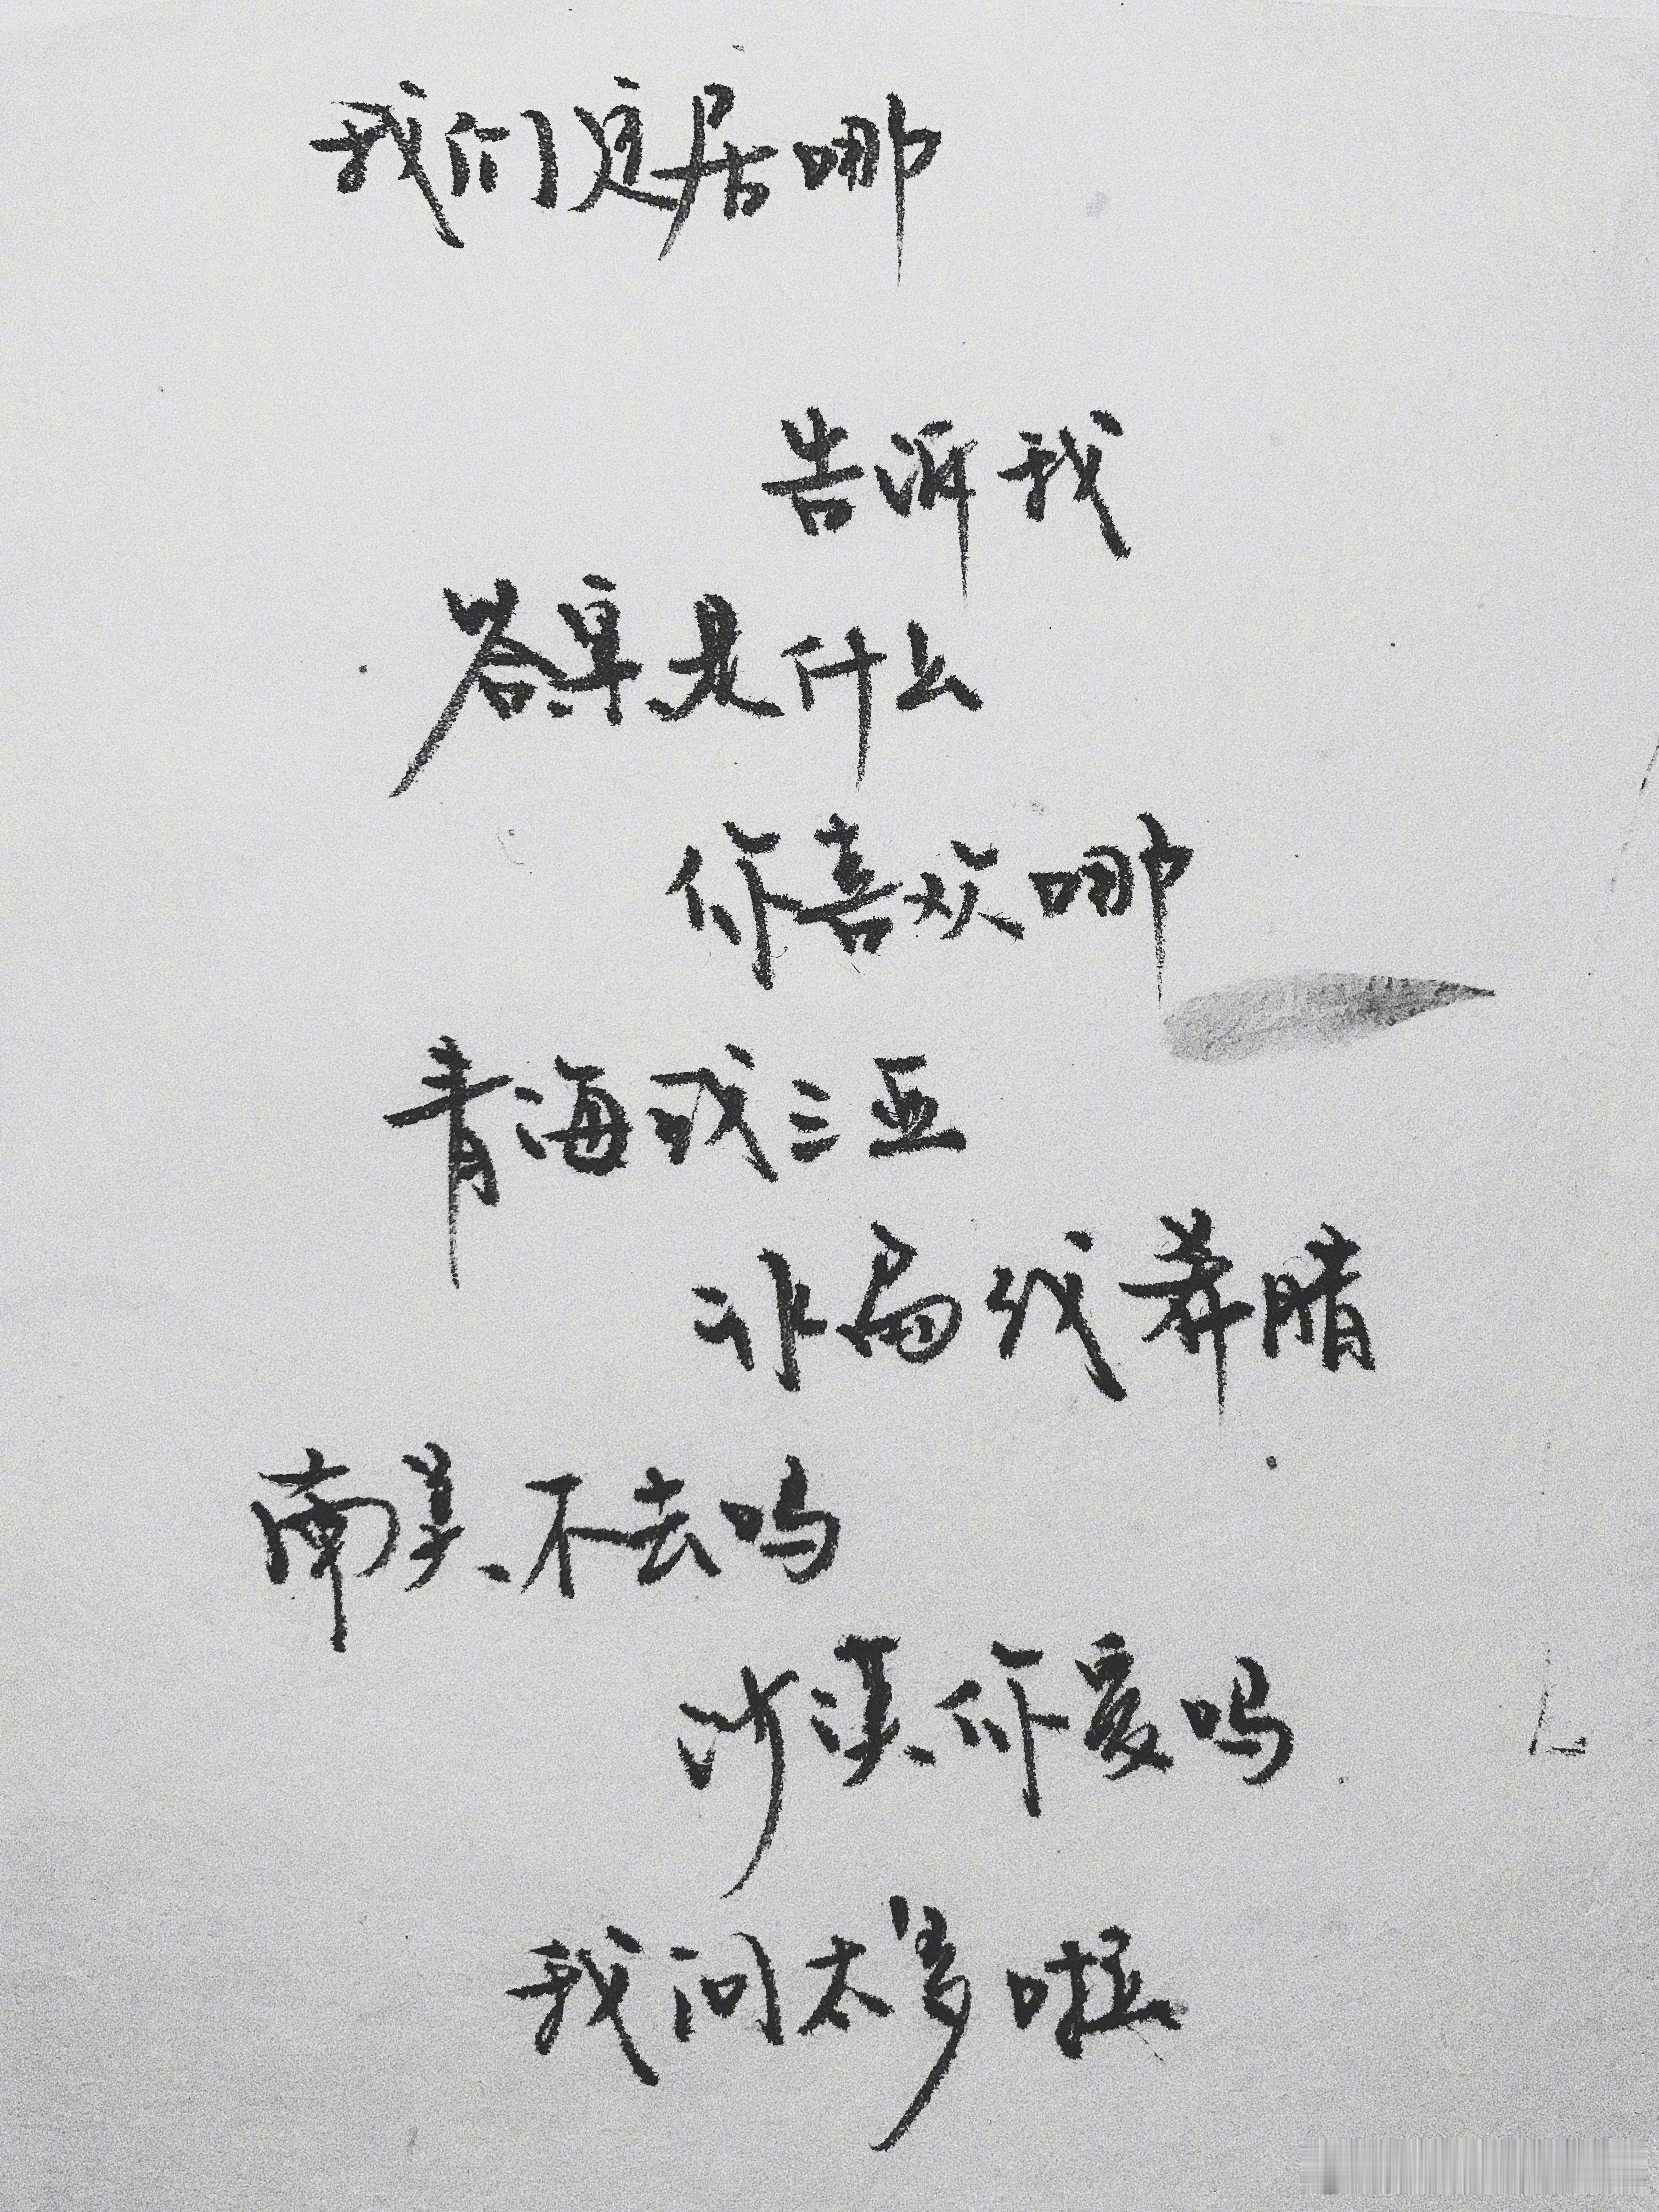 我们定居哪
告诉我
答案是什么
你喜欢哪
青海或三亚
冰岛或希腊
南美不去吗
沙漠你爱吗
我问太多啦